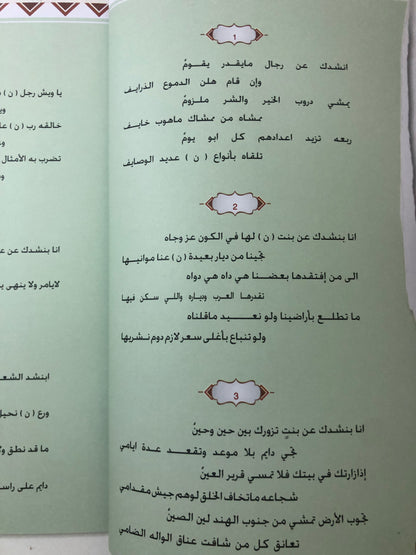 1
انشدك عن رجال مايقدر يقومُ
وإن قام هلن الدموع الذرايف
يمشي دروب الخير والشر ملزومُ
ممشاه من ممشاك ماهوب خايف
ربعه تزيد اعدادهم كل ابو يومُ
تلقاه بأنواع ( ن ) عديد الوصايف
2
انا بنشدك عن بنت (ن) لها في الكون عز وجاه
تجينا من ديار بعيدة (ن) عنا موانيها
الى من إفتقدها بعضنا هي داه هي دواه
تقدرها العرب ودياره واللي سكن فيها
ما تطلع بأراضينا ولو نعيد ماقلناه
ولو تنباع بأغلى سعر لازم دوم نشريها
3
انا بنشدك عن بنتٍ تزورك بين حين وحينُ
تجي دايم بلا موعد وتقعد عدة ايامي
إذازارتك في بيتك فلا تمسي قرير العينُ
شجاعه ماتخاف الخلق لوهم جيش مقدامي
تجوب الأرض تمشي من جنوب الهند لين الصينُ
تعانق كل من شافت عناق الواله الضامي
يا ويش رجل (ن)
خالقه رب (ن)
تضرب به الأمثال
انا بنشدك عن
لايامر ولا ينهى
ابنشد الشعـ
ورع (ن) نحيل
ما قد نطق ولا
دايم على راسـ